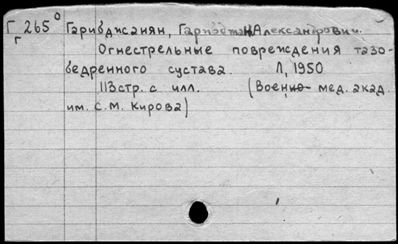 Г 265⁰ Гарибджанян, Александрович.
г Огнестрельные повреждения тазо-
бедренного сустава. Л, 1950
113стр. с илл. (Военно- мед. акад.
им. С.М. Кирова)